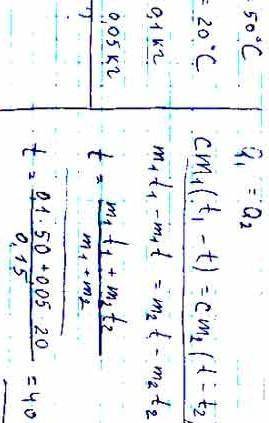 50°C
= 20°C
0,1 кг
0,05 кг
Q₁ = Q₂
cm₁(t₁ - t) = cm₂(t - t₂
m₁t₁ - m₁t = m₂t - m₂t₂
t = m₁t₁ + m₂t₂ / m₁ + m₂
t = 0,1·50 + 0,05·20 / 0,15 = 40